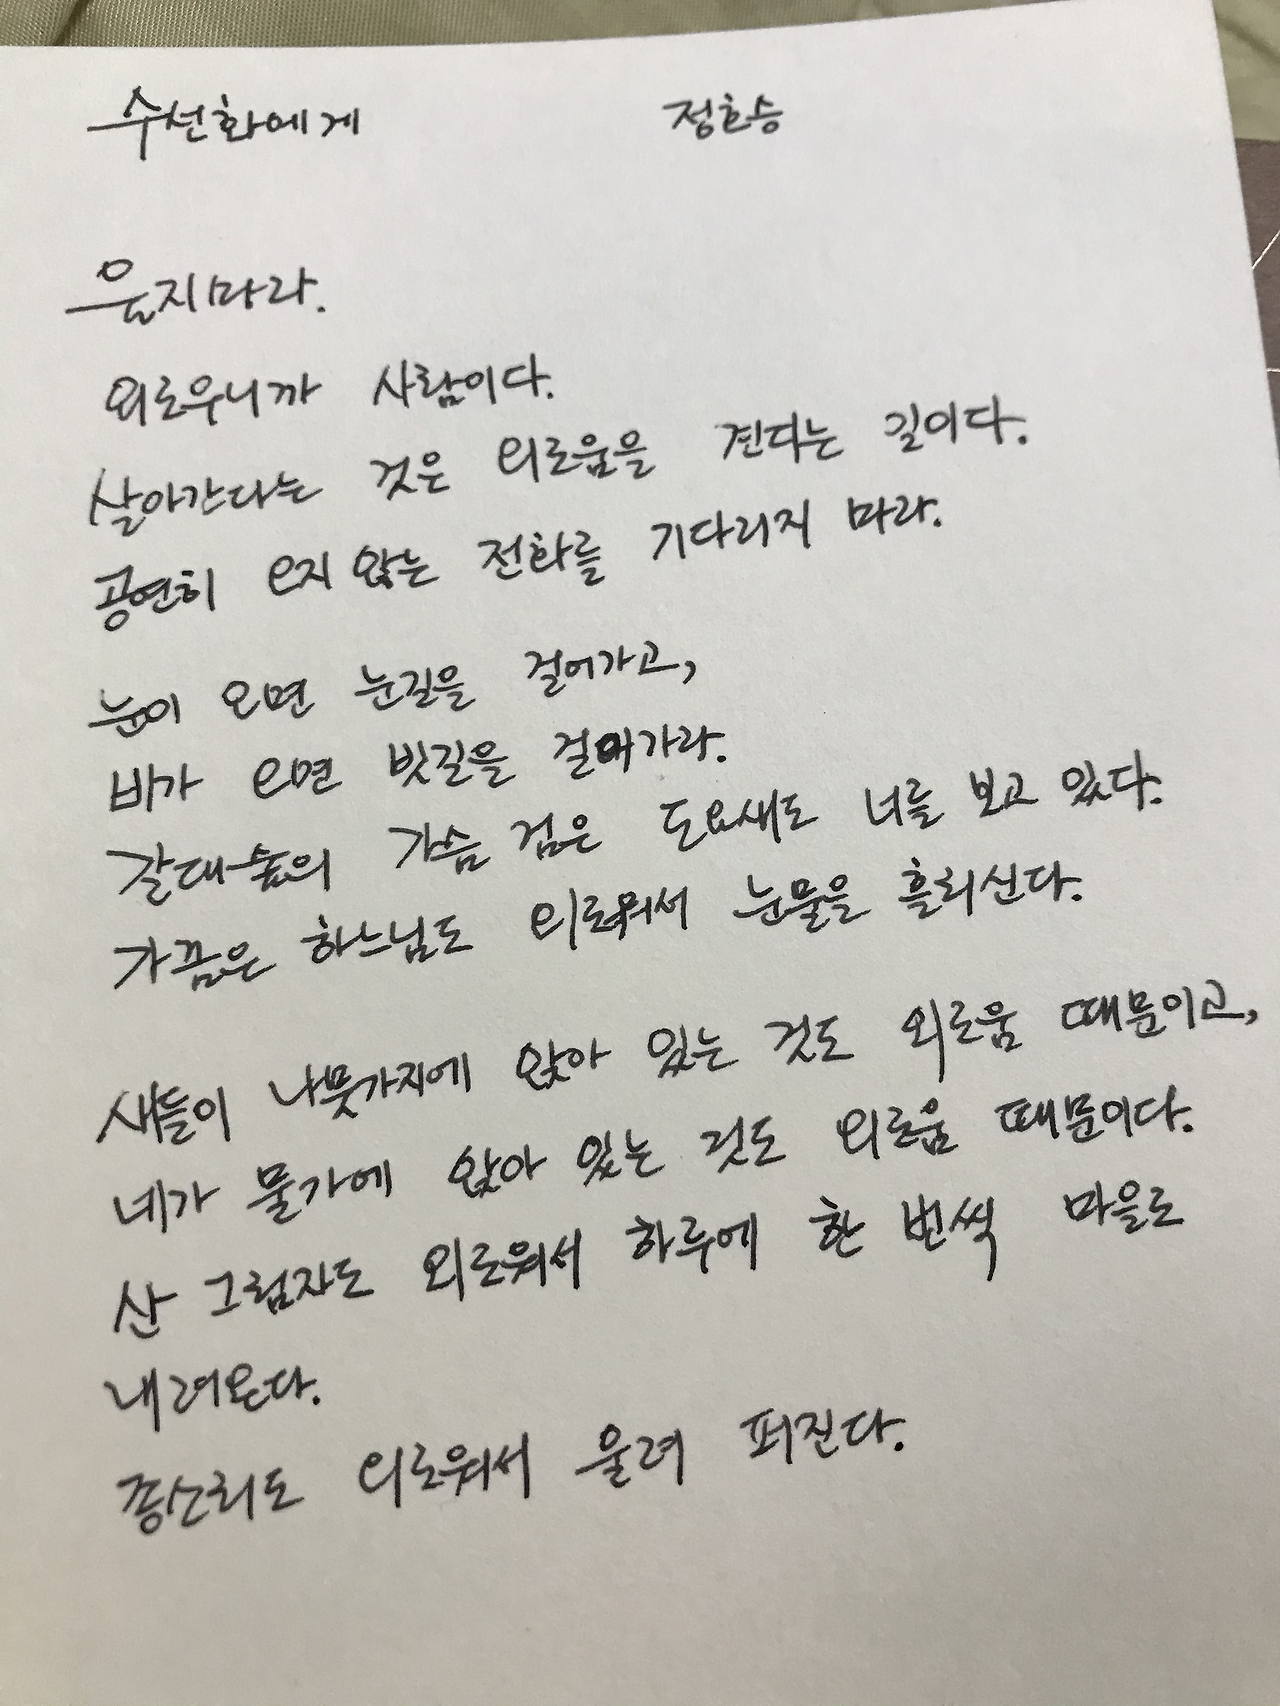 수선화에게 정호승
울지마라.
외로우니까 사람이다.
살아간다는 것은 외로움을 견디는 길이다.
공연히 오지 않는 전화를 기다리지 마라.
눈이 오면 눈길을 걸어가고,
비가 오면 빗길을 걸어가라.
갈대숲의 가슴 검은 도요새도 너를 보고 있다.
가끔은 하느님도 외로워서 눈물을 흘리신다.
새들이 나뭇가지에 앉아 있는 것도 외로움 때문이고,
네가 물가에 앉아 있는 것도 외로움 때문이다.
산 그림자도 외로워서 하루에 한 번씩 마을로
내려온다.
종소리도 외로워서 울려 퍼진다.